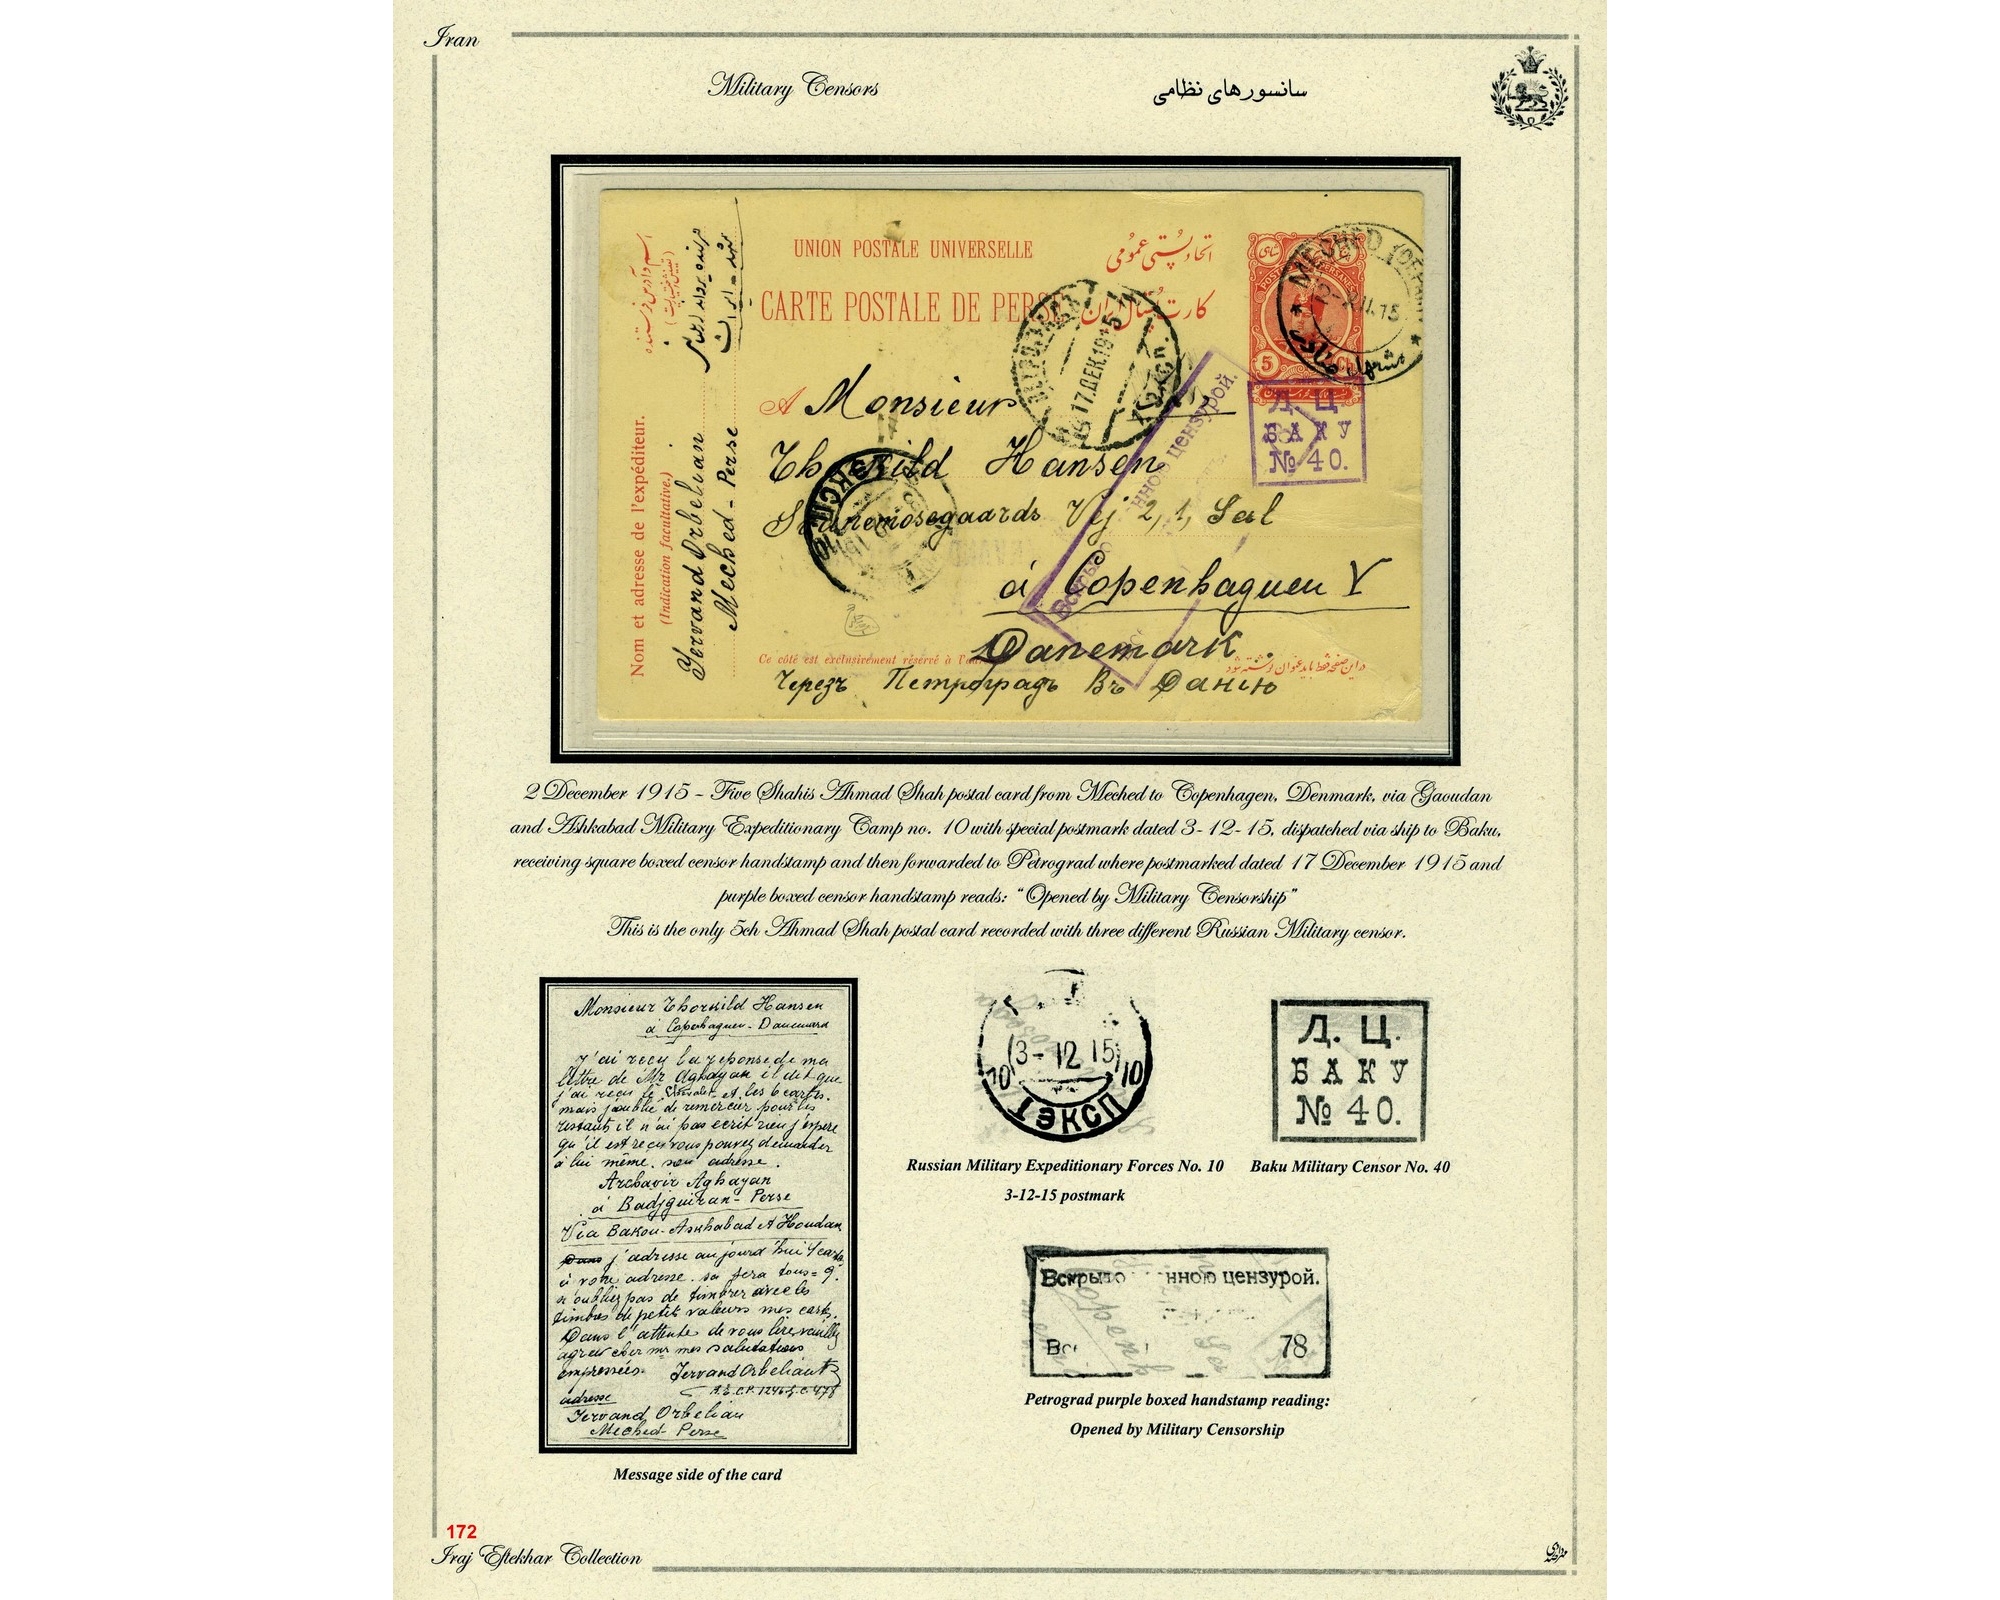 Iran
Military Censors
سانسورهای نظامی
UNION POSTALE UNIVERSELLE
اتحاد پستی عمومی
CARTE POSTALE DE PERSE
کارت پستال ایران
Nom et adresse de l'expéditeur.
(Indication facultative.)
Yervand Orbelian
Meched - Perse
A Monsieur
Thorkild Hansen
Vej 2, 1, Sal
à Copenhagueu V
Danemark.
Ce côté est exclusivement réservé à
Черезъ Петроградъ Въ Данію
5
MECHED
17 ДЕК. 1915
ЭКСП.
нною цензурой.
Д. Ц.
БАКУ
№ 40.
2 December 1915 - Five Shahis Ahmad Shah postal card from Meched to Copenhagen, Denmark, via Gaoudan
and Ashkabad Military Expeditionary Camp no. 10 with special postmark dated 3-12-15, dispatched via ship to Baku,
receiving square boxed censor handstamp and then forwarded to Petrograd where postmarked dated 17 December 1915 and
purple boxed censor handstamp reads: "Opened by Military Censorship"
This is the only 5ch Ahmad Shah postal card recorded with three different Russian Military censor.
Monsieur Thorkild Hansen
à Copenhaguen - Danemark
j'ai reçu la reponse de ma
lettre de Mr Aghayan il dit que
j'ai reçu le et les 6 cartes.
mais j'oublié de remercier pour les
restants il n'ai pas ecrit rien j'espere
qu'il est reçu vous pouvez demander
à lui même. son adresse.
Archavir Aghayan
à Badjguiran - Perse
Via Bakou - Askhabad et Houdan
j'adresse aujourd'hui 4 carts
à votre adresse. sa fera tous = 9.
n'oubliez pas de timbrer avec les
timbres de petit valeurs mes carts.
Dans l'attente de vous lire veuillez
agreer cher mr mes salutations
empressées. Yervand Orbelian
adresse
Yervand Orbelian
Meched - Perse
Message side of the card
3-12 15
10 10
ЭКСП
Russian Military Expeditionary Forces No. 10
3-12-15 postmark
Д. Ц.
БАКУ
№ 40.
Baku Military Censor No. 40
Вскрыто нною цензурой.
78
Petrograd purple boxed handstamp reading:
Opened by Military Censorship
172
Iraj Eftekhar Collection